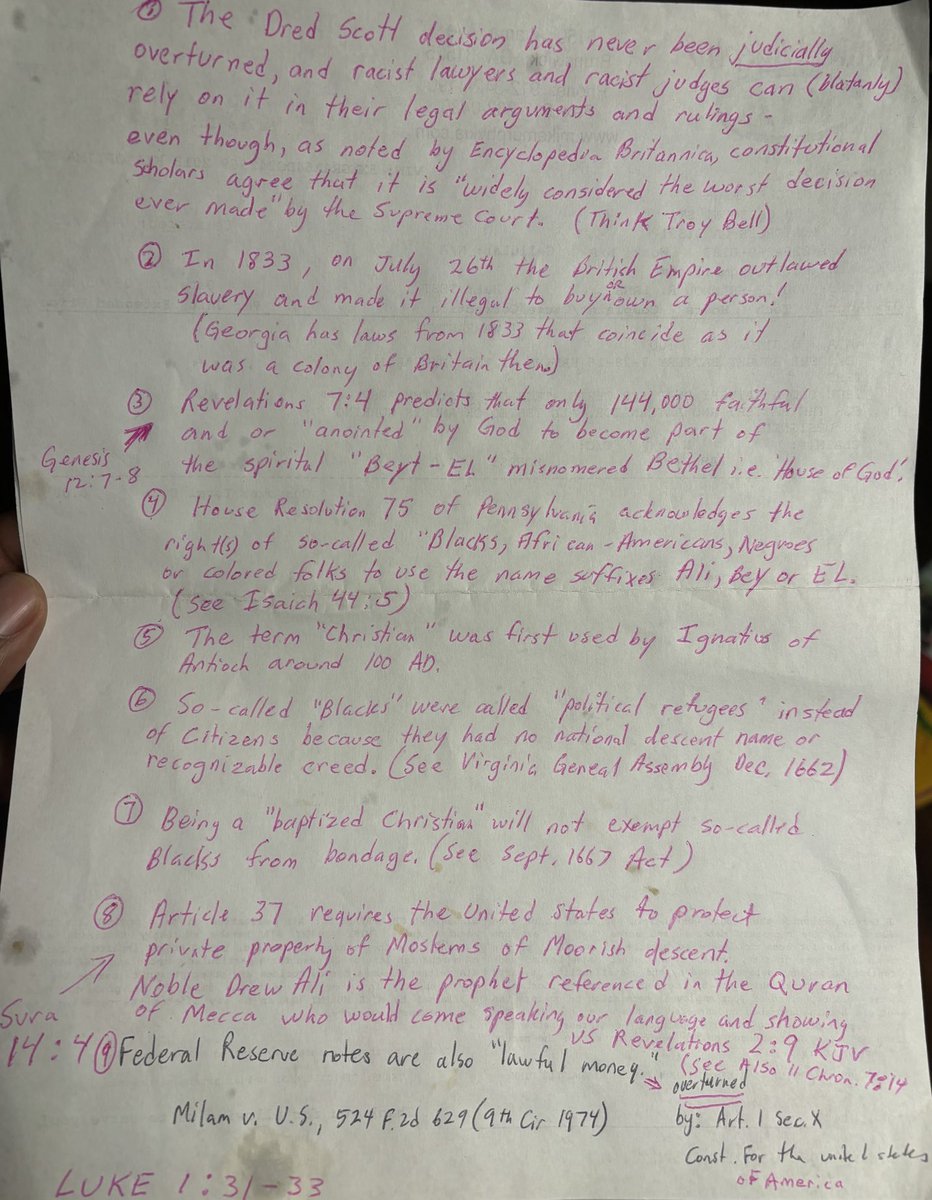 ① The Dred Scott decision has never been judicially
overturned, and racist lawyers and racist judges can (blatanly)
rely on it in their legal arguments and rulings -
even though, as noted by Encyclopedia Britannica, constitutional
Scholars agree that it is "widely considered the worst decision
ever made" by the Supreme Court. (Think Troy Bell)
② In 1833, on July 26th the British Empire outlawed
Slavery and made it illegal to buy OR own a person!
(Georgia has laws from 1833 that coincide as it
was a colony of Britain then.)
③ Revelations 7:4 predicts that only 144,000 faithful
and or "anointed" by God to become part of
Genesis
12:7-8
the spirital "Beyt-EL" misnomered Bethel i.e. 'House of God'.
④ House Resolution 75 of Pennsylvania acknowledges the
right(s) of so-called "Blacks, African-Americans, Negroes
or colored folks to use the name suffixes Ali, Bey or EL.
(See Isaich 44:5)
⑤ The term "Christian" was first used by Ignatius of
Antioch around 100 AD.
⑥ So-called "Blacks" were called "political refugees" instead
of Citizens because they had no national descent name or
recognizable creed. (See Virginia Geneal Assembly Dec. 1662)
⑦ Being a "baptized Christian" will not exempt so-called
Blacks from bondage. (See Sept. 1667 Act)
⑧ Article 37 requires the United States to protect
private property of Moslems of Moorish descent.
Noble Drew Ali is the prophet referenced in the Quran
of Mecca who would come speaking our language and showing
us Revelations 2:9 KJV
(See Also II Chron. 7:14
Sura
14:4
⑨ Federal Reserve notes are also "lawful money."
overturned
Milam v. U.S., 524 F.2d 629 (9th Cir 1974)
by: Art. 1 Sec. X
Const. For the united states
of America
LUKE 1:31-33